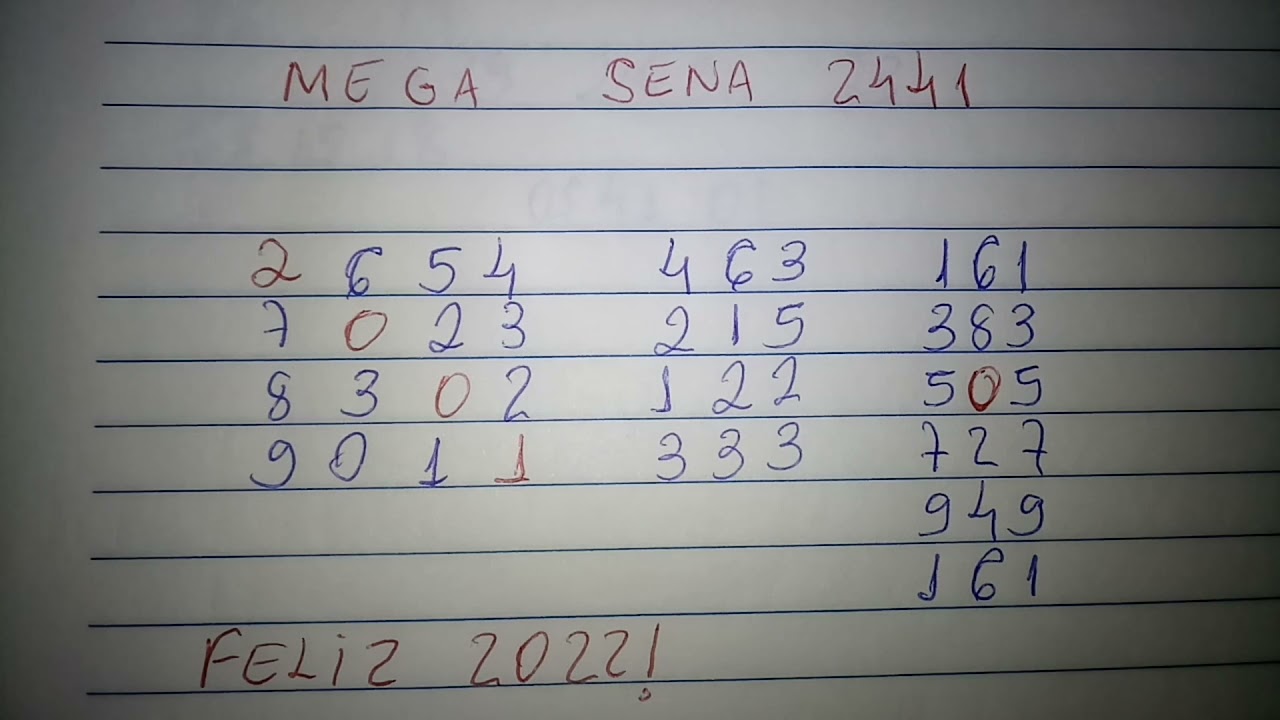 MEGA SENA 2441
2 6 5 4 4 6 3 1 6 1
7 0 2 3 2 1 5 3 8 3
8 3 0 2 1 2 2 5 0 5
9 0 1 1 3 3 3 7 2 7
9 4 9
1 6 1
FELIZ 2022!